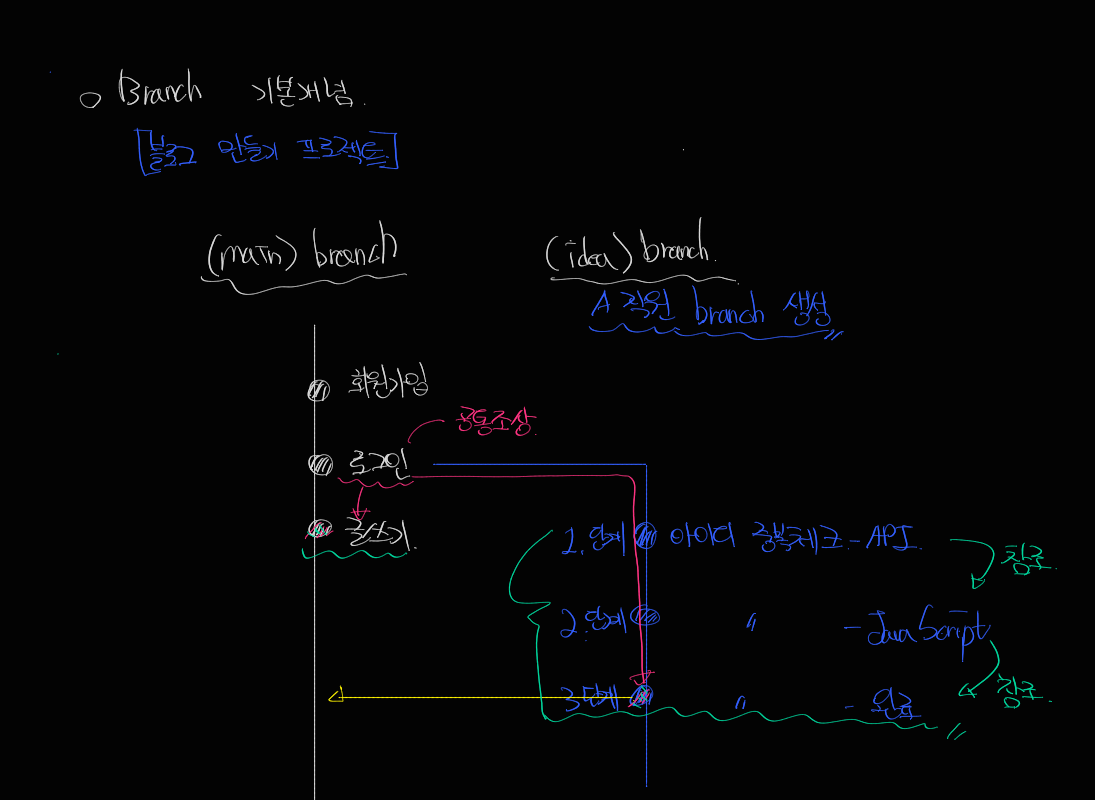 ○ Branch 기본개념.
[블로그 만들기 프로젝트]
(main) branch
(idea) branch.
A 직원 branch 생성
회원가입
공통조상.
로그인
글쓰기.
1.단계 아이디 중복체크 - API.
참조.
2.단계 〃 - JavaScript
3.단계 〃 - 완료
참조.